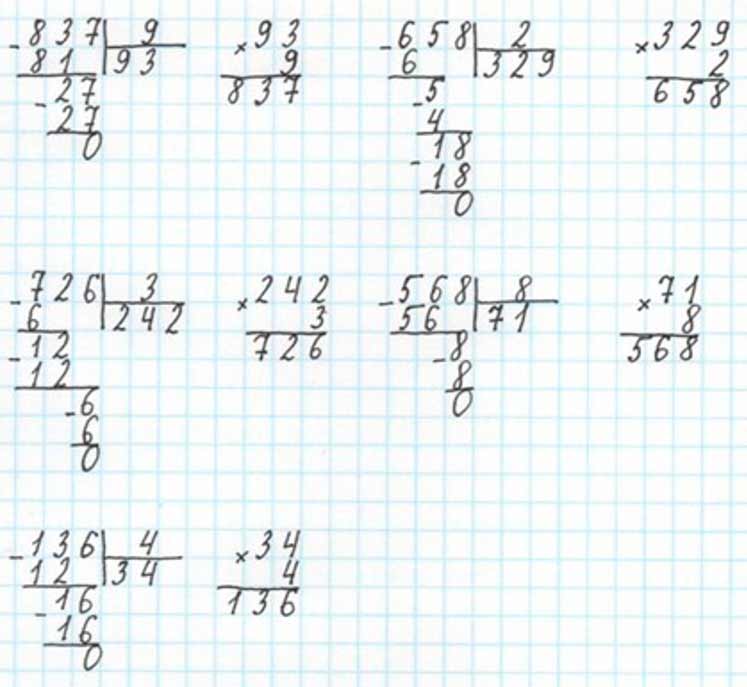 - 837 | 9
81 | 93
- 27
27
0
× 93
9
837
- 658 | 2
6 | 329
- 5
4
- 18
18
0
× 329
2
658
- 726 | 3
6 | 242
- 12
12
- 6
6
0
× 242
3
726
- 568 | 8
56 | 71
- 8
8
0
× 71
8
568
- 136 | 4
12 | 34
- 16
16
0
× 34
4
136